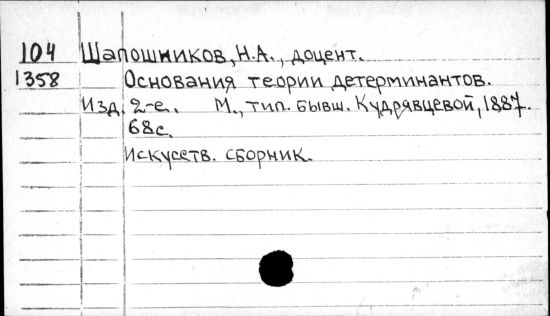 104 Шапошников, Н.А., доцент.
1358 Основания теории детерминантов.
Изд. 2-е. М., тип. бывш. Кудрявцевой, 1887.
68с.
Искусств. сборник.